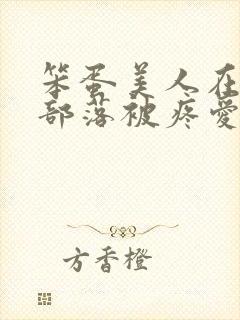 笨蛋美人在
部落被疼爱
方香橙